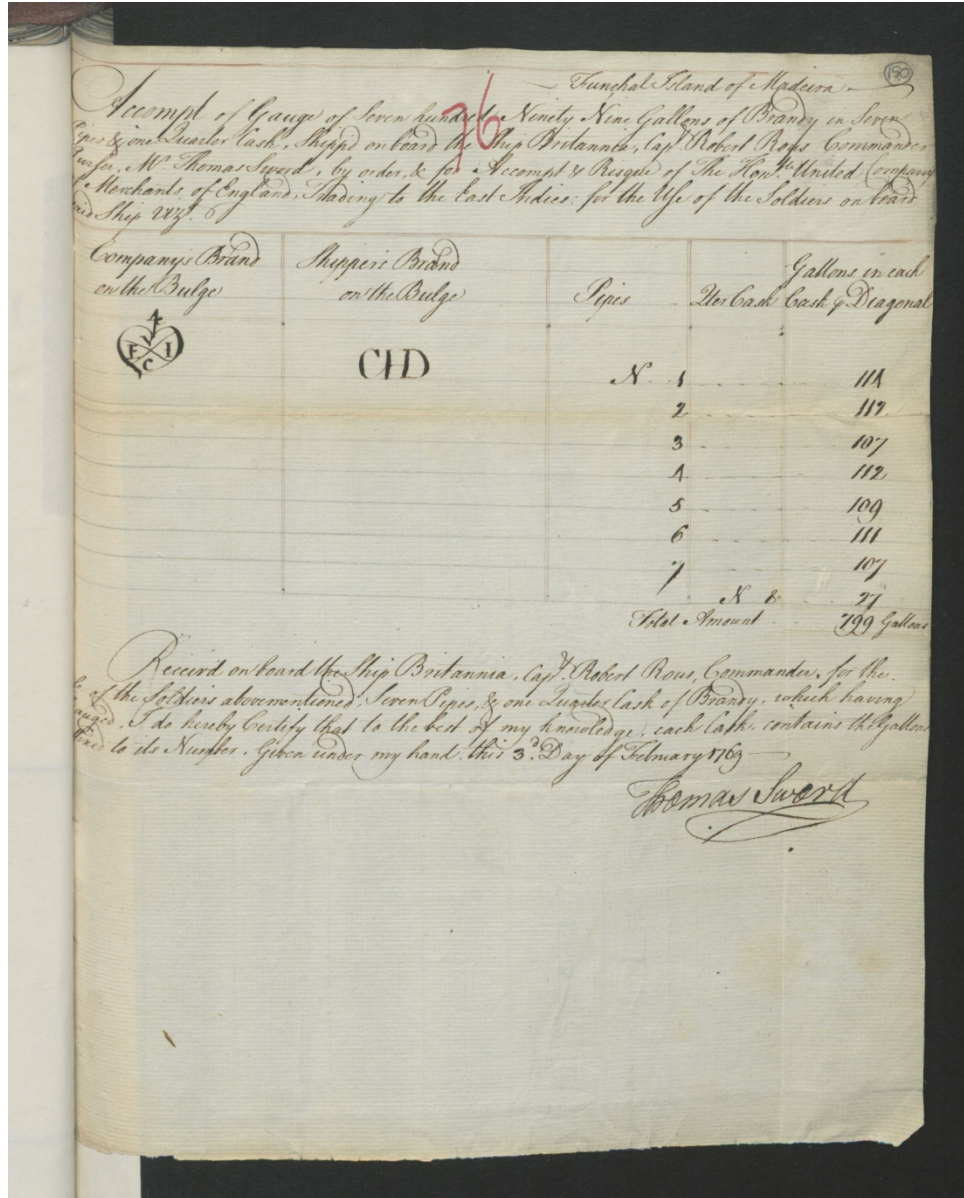 Funchal Island of Madeira
150
76
Accompt of Gauge of Seven hundred Ninety Nine Gallons of Brandy in Seven
Pipes & one Quarter Cask, Shipp'd on board the Ship Britannia, Cap.t Robert Rous Commander
Purser, Mr. Thomas Sword, by order, & for Accompt & Risque of The Hon.ble United Company
of Merchants of England, Trading to the East Indies: for the Use of the Soldiers on board
said Ship vizt.
Company's Brand
on the Bulge
Shipper's Brand
on the Bulge
Pipes
Qter Cask
Gallons in each
Cask p Diagonal
4
V E I C
CHD
N. 1 114
2 112
3 107
4 112
5 109
6 111
7 107
N 8 27
Total Amount 799 Gallons
Receiv'd on board the Ship Britannia, Cap.t Robert Rous, Commander, for the
of the Soldiers abovementioned, Seven Pipes, & one Quarter Cask of Brandy, which having
gauged, I do hereby Certify that to the best of my knowledge, each Cask contains the Gallons
to its Number. Given under my hand this 3.d Day of February 1769
Thomas Sword